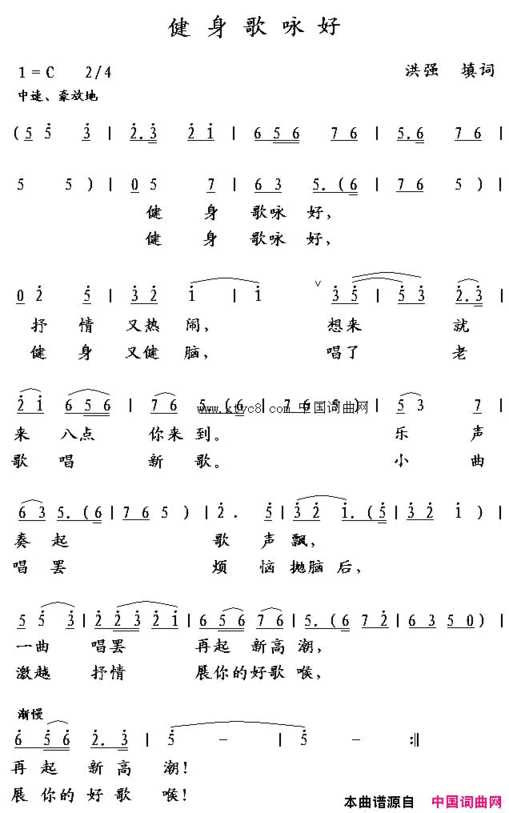 健身歌咏好
1=C 2/4 洪强 填词
中速、豪放地
(5 5 3 | 2.3 2 1 | 6 5 6 7 6 | 5.6 7 6 |
5 5 ) | 0 5 7 | 6 3 5.(6 | 7 6 5 ) |
健 身 歌咏 好,
健 身 歌咏 好,
0 2 5 | 3 2 1 | 1 ∨ 3 5 | 5 3 2.3 |
抒 情 又热 闹, 想来 就
健 身 又健 脑, 唱了 老
2 1 6 5 6 | 7 6 5 (6 | 7 6 5 ) | 5 3 7 |
www.ktvc8.com 中国词曲网
来 八点 你来 到。 乐 声
歌 唱 新 歌。 小 曲
6 3 5.(6 | 7 6 5 ) | 2 . 5 | 3 2 1.(5 | 3 2 1 ) |
奏 起 歌 声 飘,
唱 罢 烦 恼 抛脑 后,
5 5 3 | 2 2 3 2 1 | 6 5 6 7 6 | 5.(6 7 2 | 6 3 5 0 ) |
一曲 唱罢 再起 新高 潮,
激越 抒情 展你的好歌 喉,
渐慢
6 5 6 2.3 | 5 – | 5 – :||
再 起 新 高 潮!
展 你 的 好 歌 喉!
本曲谱源自 中国词曲网